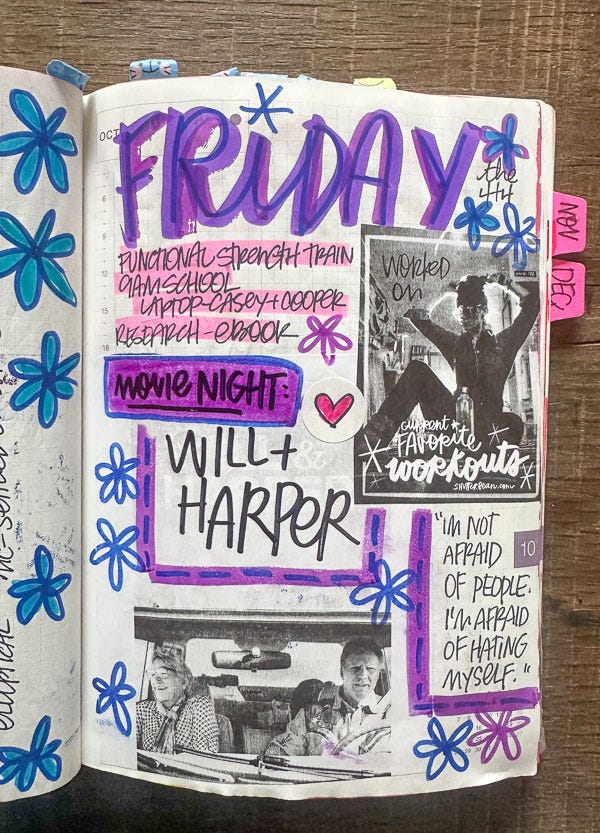 OCT
FRIDAY
the
4th
FUNCTIONAL STRENGTH TRAIN
9AM SCHOOL
LAPTOP-CASEY + COOPER
RESEARCH - EBOOK
WORKED
ON
current +
FAVORITE
workouts
SHUTTERBEAN.COM
MOVIE NIGHT:
WILL +
HARPER
"I'M NOT
AFRAID
OF PEOPLE.
I'M AFRAID
OF HATING
MYSELF."
10
NOV
DEC
elliptical